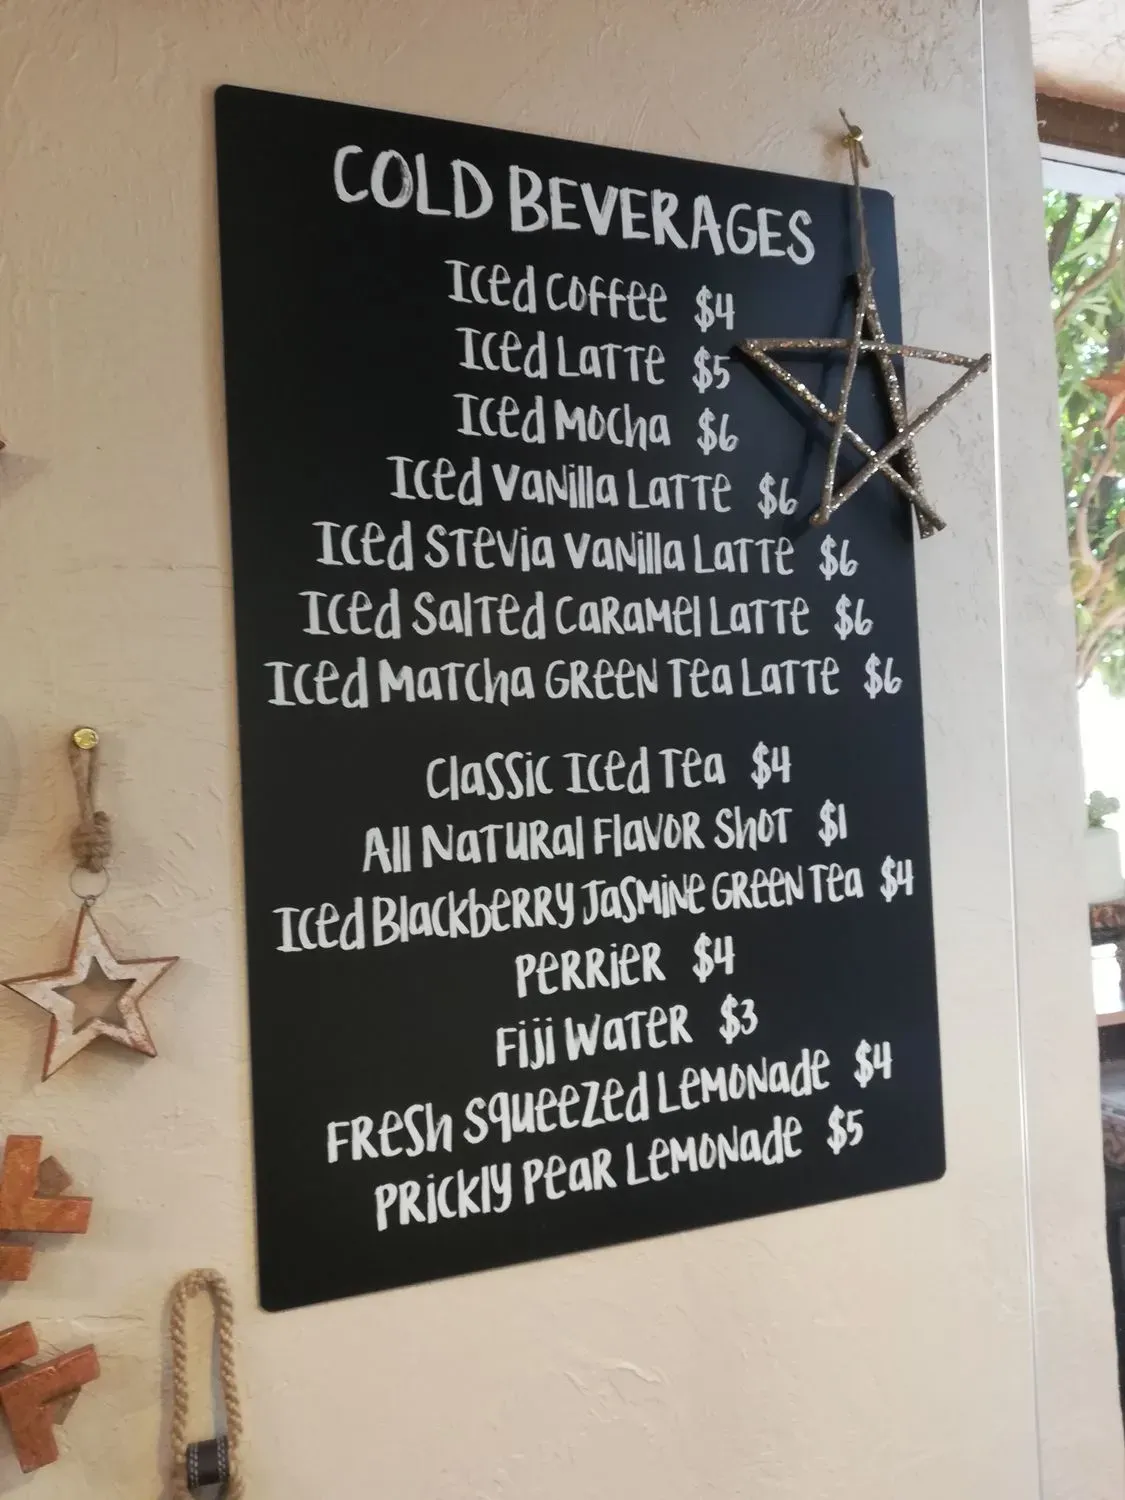 COLD BEVERAGES
Iced Coffee $4
Iced Latte $5
Iced Mocha $6
Iced Vanilla Latte $6
Iced Stevia Vanilla Latte $6
Iced Salted Caramel Latte $6
Iced Matcha Green Tea Latte $6
Classic Iced Tea $4
All Natural Flavor Shot $1
Iced Blackberry Jasmine Green Tea $4
Perrier $4
Fiji Water $3
Fresh Squeezed Lemonade $4
Prickly Pear Lemonade $5